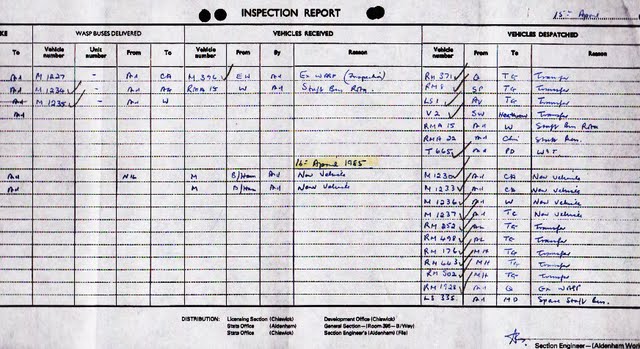 INSPECTION REPORT 15th April
KE WASP BUSES DELIVERED VEHICLES RECEIVED VEHICLES DESPATCHED
To Vehicle number Unit number From To Vehicle number From By Reason Vehicle number From To Reason
Ad M 1227 - Ad CA M 396 EH Ad Ex WASP (Inspection) RM 371 Q TG Transfer
Ad M 1234 - Ad RMA 15 W Ad Staff Bus Rota. RM 8 SP TG Transfer
Ad M 1235 - Ad W LS 1 AV TG Transfer
Ad V 2 SW Transfer
RMA 15 Ad W Staff Bus Rota
RMA 22 Ad Chi Staff Bus.
T 665 Ad PD
16th April 1985
Ad N16 M B/Ham Ad New Vehicle M 1230 Ad CA New Vehicle
Ad M B/Ham Ad New Vehicle M 1233 Ad CA New Vehicle
M 1236 Ad W New Vehicle
M 1237 Ad TC New Vehicle
RM 252 AL TG Transfer
RM 498 AL TG Transfer
RM 176 MH TG Transfer
RM 443 MH TG Transfer
RM 502 MH TG Transfer
RM 1928 Ad Q Ex WASP
LS 335. Ad MD Spare Staff Bus.
DISTRIBUTION: Licensing Section (Chiswick) Development Office (Chiswick)
Stats Office (Chiswick) General Section - (Room 395 - B/Way)
Stats Office (Aldenham) Section Engineer's (Aldenham) (File)
Section Engineer - (Aldenham Wor